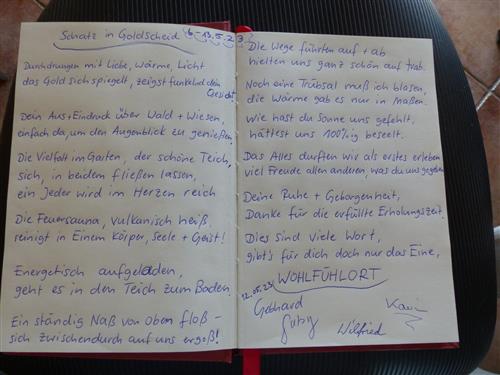 Schatz in Goldscheid 6.-13.5.23
Durchdrungen mit Liebe, Wärme, Licht
das Gold sich spiegelt, zeigst funkelnd dein
Gesicht.
Dein Aus+Eindruck über Wald + Wiesen,
einfach da, um den Augenblick zu genießen.
Die Vielfalt im Garten, der schöne Teich,
sich, in beidem fließen lassen,
ein jeder wird im Herzen reich
Die Feuersauna, vulkanisch heiß
reinigt in Einem Körper, Seele + Geist!
Energetisch aufgeladen,
geht es in den Teich zum Baden.
Ein ständig Naß von oben floß -
sich zwischendurch auf uns ergoß!
Die Wege führten auf + ab
hielten uns ganz schön auf trab.
Noch eine Trübsal muß ich blasen,
die Wärme gab es nur in Maßen.
Wie hast du Sonne uns gefehlt,
hättest uns 100%ig beseelt.
Das Alles durften wir als erstes erleben
viel Freude allen anderen, was du uns gegeben
Deine Ruhe + Geborgenheit,
Danke für die erfüllte Erholungszeit.
Dies sind viele Wort,
gibt's für dich doch nur das Eine,
WOHLFÜHLORT
12.05.23
Gebhard
Wilfried